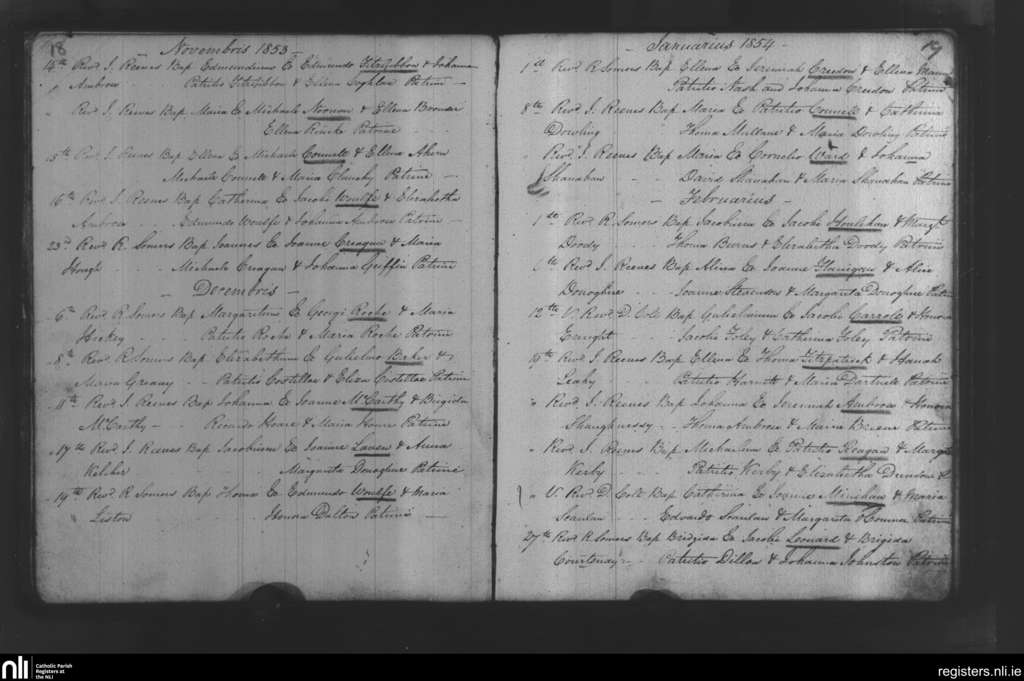 18
Novembris 1853
14th Revd J. Reeves Bap Edmundum Ex Edmundo Fitzgibbon & Johanna
Ambrose Patritio Fitzgibbon & Ellena Coghlan Patrini
" Revd J. Reeves Bap Maria Ex Michaele Noonan & Ellena
Ellena Roache Patrini
15th Revd J. Reeves Bap Ellena Ex Michaele Connell & Ellena Ahern
Michaele Connell & Maria Clanchy Patrini
16th Revd J. Reeves Bap Catherina Ex Jacobo Woulfe & Elizabetha
Ambrose Edmundo Woulfe & Johanna Ambrose Patrini
23d Revd R. Somers Bap Joannes Ex Joanne Creagan & Maria
Hough Michaele Creagan & Johanna Griffin Patrini
Decembris
6th Revd R. Somers Bap Margaritam Ex Georgi Roche & Maria
Hickey Patritio Roche & Maria Roche Patrini
8th Revd R. Somers Bap Elizabetham Ex Gulielmo Beher &
Maria Greany Patritio Costelloe & Eliza Costelloe Patrini
11th Revd J. Reeves Bap Johanna Ex Joanne McCarthy & Brigida
McCarthy Ricardo Hoare & Maria Hoare Patrini
17th Revd J. Reeves Bap Jacobum Ex Joanne Laven & Anna
Kelcher Margarita Donoghue Patrini
19th Revd R Somers Bap Thoma Ex Edmundo Woulfe & Maria
Liston Honora Dalton Patrini
19
Januarius 1854
1st Revd R. Somers Bap Ellena Ex Jeremiah Creedon & Ellena
Patritio Nash and Johanna Creedon Patrini
8th Revd J. Reeves Bap Maria Ex Patritio Connell & Catherina
Dowling Thoma Mullane & Maria Dowling Patrini
" Revd J. Reeves Bap Maria Ex Cornelio Ward & Johanna
Shanahan David Shanahan & Maria Shanahan Patrini
Februarius
1st Revd R. Somers Bap Jacobum Ex Jacobi Houlihan & Margt
Doody Thoma Burns & Elizabetha Doody Patrini
6th Revd J. Reeves Bap Alicia Ex Joanne Flanigan & Alice
Donoghue Joanne Stevenson & Margarita Donoghue Patrini
12th V. Revd D. Colt Bap Gulielmum Ex Jacobi Carroll & Honora
Enright Jacobi Foley & Catherina Foley Patrini
19th Revd J. Reeves Bap Ellena Ex Thoma Fitzpatrick & Hanah
Leahy Patritio Harnett & Maria Patrini
" Revd J. Reeves Bap Johanna Ex Jeremiah Ambrose & Honora
Shaughnessy Thoma Ambrose & Maria Breene Patrini
" Revd J. Reeves Bap Michaelem Ex Patritio Reagan & Margt
Kerby Patritio Kerby & Elizabetha Dundon &
" V. Revd D. Colt Bap Catherina Ex Joanne Minihan & Maria
Scanlan Edvardo Scanlan & Margarita Patrini
27th Revd R. Somers Bap Bridgida Ex Jacobi Leonard & Brigida
Courtenay Patritio Dillon & Johanna Johnston Patrini
nli Catholic Parish
Registers at
the NLI
registers.nli.ie